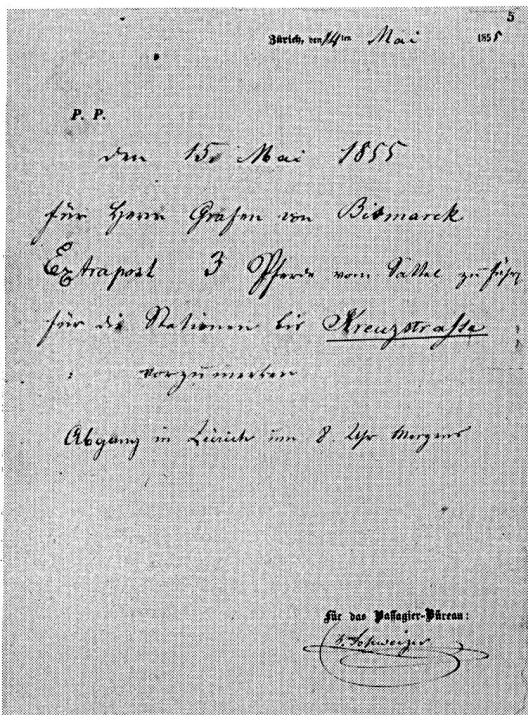 5
Zürich, den 14ten Mai 1855
P. P.
den 15. Mai 1855
für Herrn Grafen von Bismarck
Extrapost 3 Pferde vom Sattel zu führ
für die Stationen bis Kreuzstrasse
vorzumerken
Abgang in Zürich um 8. Uhr Morgens
Für das Passagier-Büreau:
Schweizer